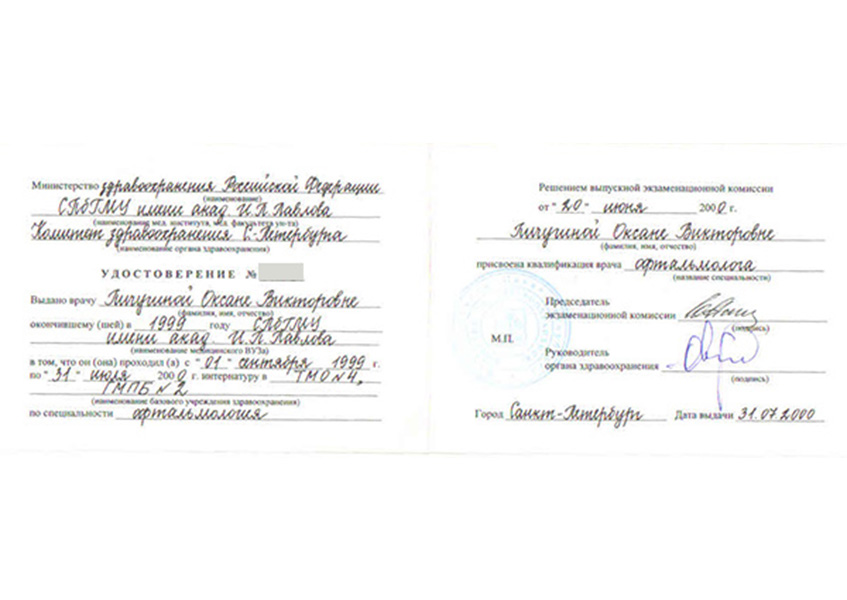 Министерство здравоохранения Российской Федерации
(наименование)
СПбГМУ имени акад. И.П. Павлова
(наименование мед. института, мед. факультета ун-та)
Комитет здравоохранения С-Петербурга
(наименование органа здравоохранения)
УДОСТОВЕРЕНИЕ №
Выдано врачу Пичугиной Оксане Викторовне
(фамилия, имя, отчество)
окончившему (шей) в 1999 году СПбГМУ
имени акад. И.П. Павлова
(наименование медицинского ВУЗа)
в том, что он (она) проходил (а) с "01" сентября 1999 г.
по "31" июля 2000 г. интернатуру в ТМО №4,
ГМПБ №2
(наименование базового учреждения здравоохранения)
по специальности офтальмология
Решением выпускной экзаменационной комиссии
от "20" июня 2000 г.
Пичугиной Оксане Викторовне
(фамилия, имя, отчество)
присвоена квалификация врача офтальмолога
(название специальности)
Председатель
экзаменационной комиссии
(подпись)
М.П.
Руководитель
органа здравоохранения
(подпись)
Город Санкт-Петербург Дата выдачи 31.07.2000